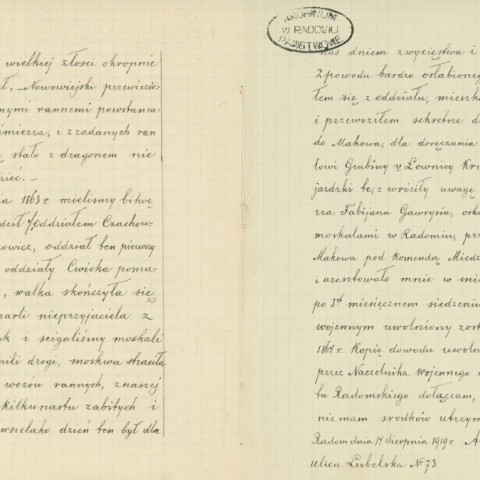 wielkiej złości okropnie
ł. – Nowowiejski przewiezio
nymi rannemi powstańca
imierza, i z zadanych ran
stało z dragonem nie
dzieć. –
ia 1863 r. mieliśmy bitwę
oddziałem Czachow
owicz, oddział ten pierwszy
oddziały Ćwieka poma
, walka skończyła się
parli nieprzyjaciela z
k i ścigaliśmy moskali
nili drogi, moskwa straciła
wozów rannych, z naszej
kilkunastu zabitych i
wszelako dzień ten był dla
ARCHIWUM
PAŃSTWOWE
W RADOMIU
nas dniem zwycięstwa i
Z powodu bardzo osłabioneg
łem się z oddziału, mieszka
i przewoziłem sekretne d
do Makowa, dla doręczania
lowi Grabiny v Łownicy Kru
jazdzki te, zwróciły uwagę
rza Fabijana Gawrysia,
moskalami w Radomiu, prz
Makowa pod komendą Miedz
i aresztowało mnie w mie
po 3ch miesięcznem siedzeniu
wojennym uwolniony zost
1864 r. Kopię dowodu uwoln
przez Naczelnika Wojennego
tu Radomskiego dołączam,
nie mam środków utrzym
Radom dnia 14 Sierpnia 1919 r. A
Ulica Lubelska № 73